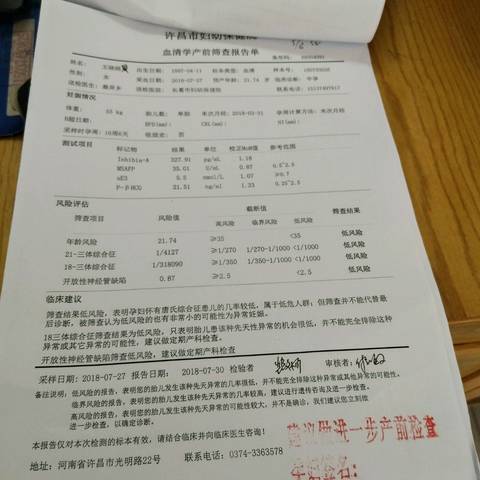 许昌市妇幼保健院
血清学产前筛查报告单
姓名：
出生日期：1997-04-11 标本类型：血清
性别：女 采血日期：2018-07-27 预产年龄：21.74 岁 临床诊断：中孕
送检医院：长葛市妇幼保健院
妊娠情况
体重：65 kg 胎儿数：单胎 末次月经：2018-03-31 孕周计算方法：末次月经
B超日期： BPD(mm)： CRL(mm)： NT(mm)：
采样时孕周：16周6天 吸烟史：否
测试项目 标记物 结果 单位 校正MoM值 参考范围
Inhibin-A 327.91 pg/mL 1.18
MSAFP 35.01 U/mL 0.87 0.5~2.5
uE3 5.5 nmol/L 1.07 ≥0.7
F-βHCG 21.51 ng/ml 1.33 0.25~2.5
风险评估
截断值
筛查项目 风险值 高风险 临界风险 低风险 筛查结果
年龄风险 21.74 ≥35 <35 低风险
21-三体综合征 1/4127 ≥1/270 1/270-1/1000 <1/1000 低风险
18-三体综合征 1/318090 ≥1/350 1/350-1/1000 <1/1000 低风险
开放性神经管缺陷 0.87 ≥2.5 <2.5 低风险
临床建议
筛查结果低风险，表明孕妇怀有唐氏综合征患儿的几率较低，属于低危人群；但筛查并不能代替最
后诊断，被筛查认为低风险的也有非常小的可能性为异常妊娠。
18三体综合征筛查结果为低风险，只表明胎儿患该种先天异常的机会很低，并不能完全排除这种
异常或其它异常的可能性，建议做定期产科检查
开放性神经管缺陷筛查低风险，建议做定期产科检查
采样日期：2018-07-27 报告日期：2018-07-30 检验者 审核者：
备注说明：低风险的报告，表明您的胎儿发生该种先天异常的几率很低，并不能完全排除这种异常或其他异常的可能性。
临界风险的报告，表明您的胎儿发生该种先天异常的几率较高，建议进行遗传咨询及进一步检查。
高风险的报告，表明您的胎儿发生该种先天异常的可能性较大，并不是确诊，我们建议您立刻做
进一步检查，以确定诊断。
本报告仅对本次检测的标本有效，请结合临床并向临床医生咨询！
地址：河南省许昌市光明路22号 联系电话：0374-3363578
建议做进一步产前检查